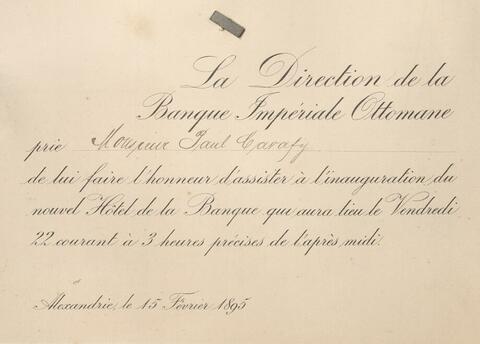 La Direction de la
Banque Impériale Ottomane
prie Monsieur Paul Cavafy
de lui faire l'honneur d'assister à l'inauguration du
nouvel Hôtel de la Banque qui aura lieu le Vendredi
22 courant à 3 heures précises de l'après midi.
Alexandrie, le 15 Février 1895